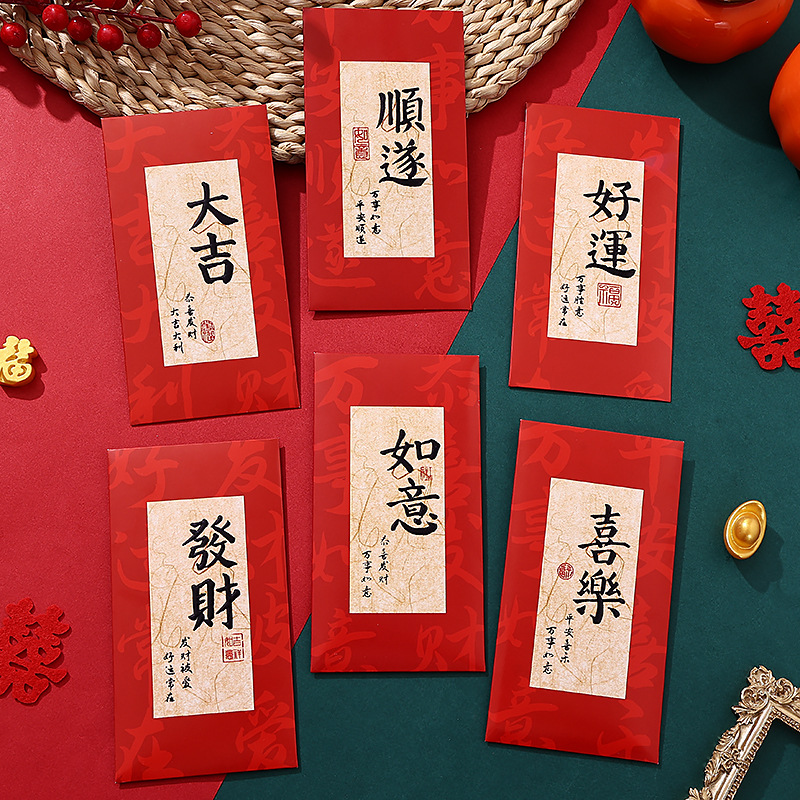 順遂
万事如意
平安順遂
如意
大吉
恭喜发财
大吉大利
好運
万事胜意
好运常在
福
發財
发财被爱
好运常在
吉祥如意
如意
恭喜发财
万事如意
喜樂
平安喜乐
万事如意
福
囍
囍